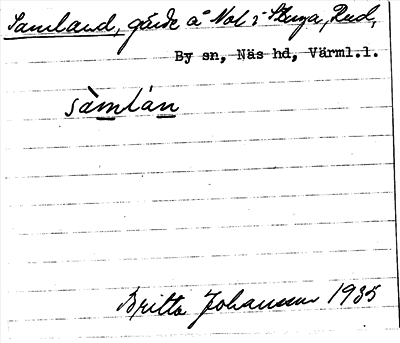 Samland, gärde å Nol i Stuga, Rud,
By sn, Näs hd, Värml.l.
sàmlán
Britta Johansson 1935